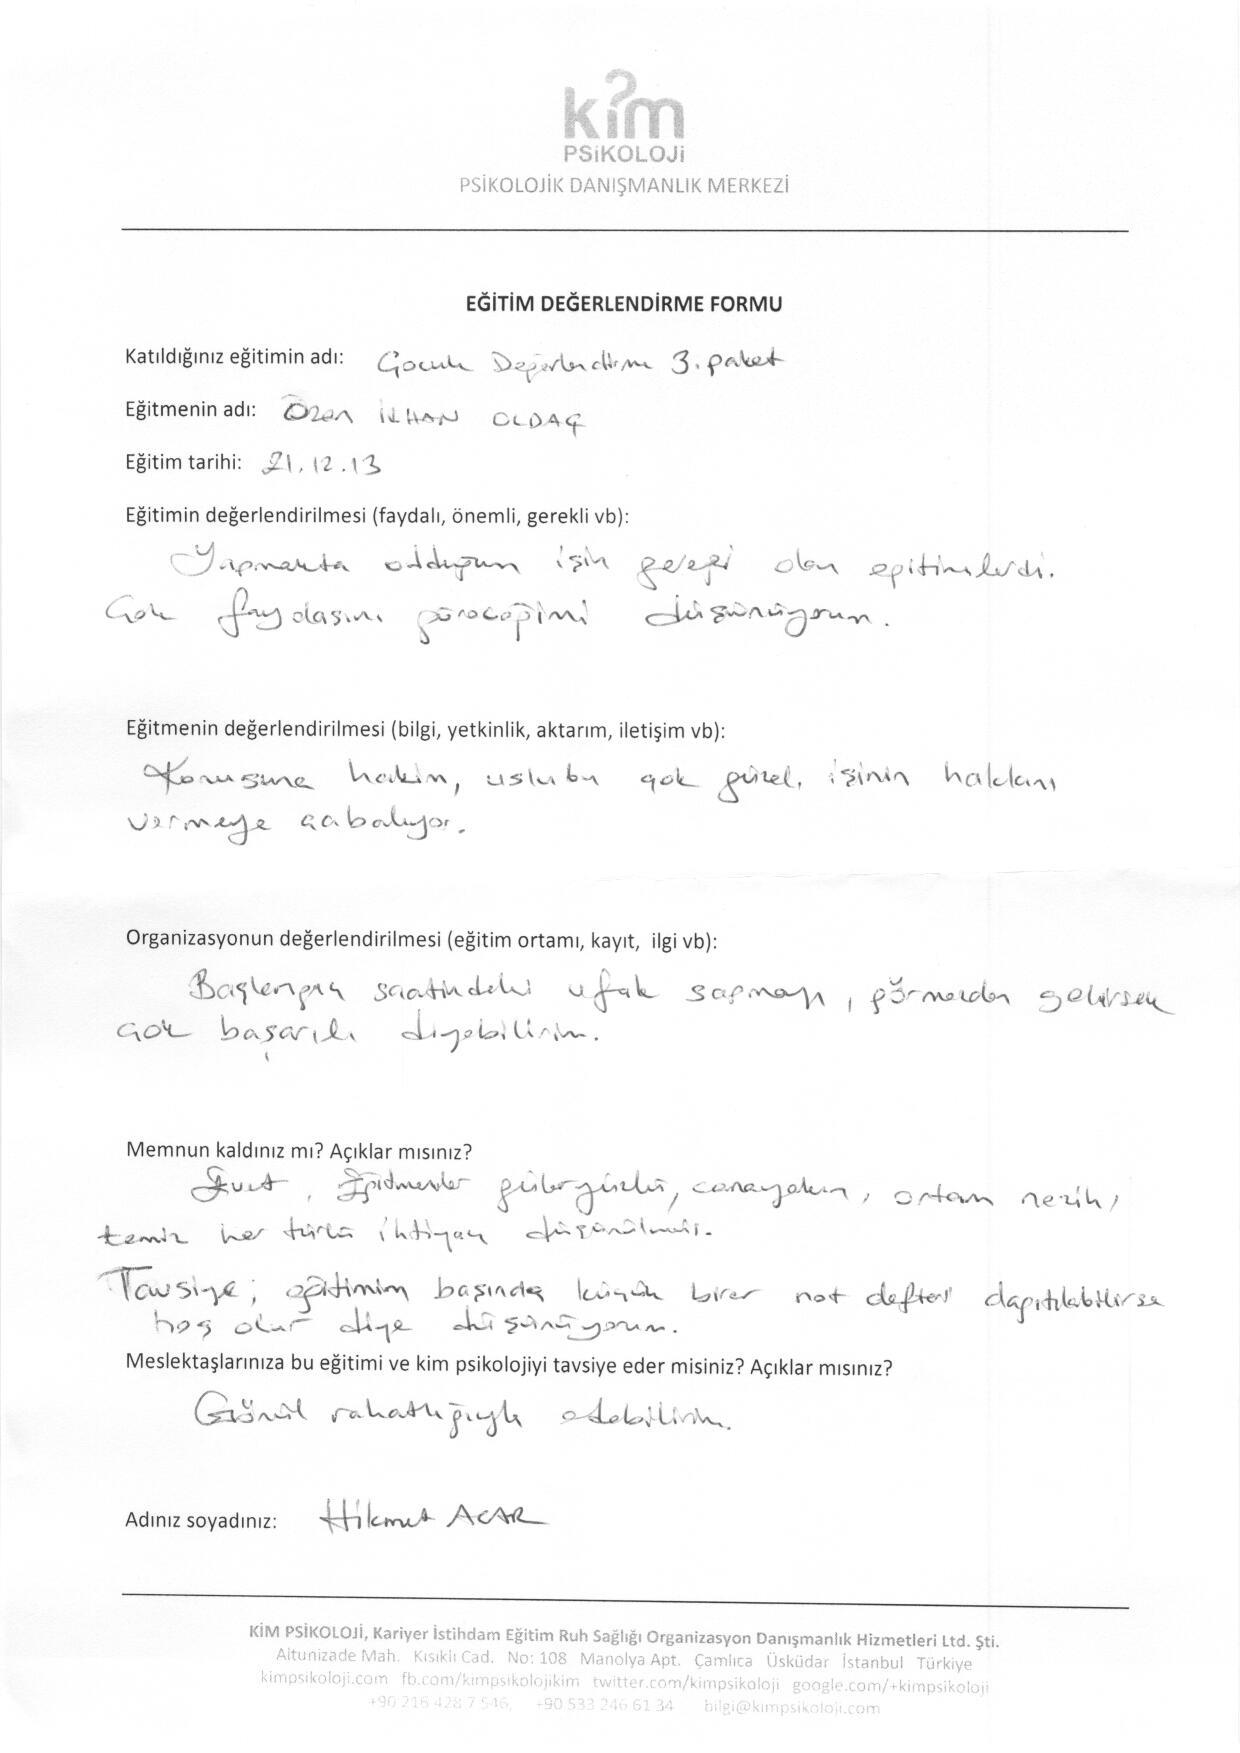 kim
PSiKOLOJi
PSİKOLOJİK DANIŞMANLIK MERKEZİ
EĞİTİM DEĞERLENDİRME FORMU
Katıldığınız eğitimin adı: Çocuk Değerlendirme 3. paket
Eğitmenin adı: Özen İLHAN OLDAÇ
Eğitim tarihi: 21.12.13
Eğitimin değerlendirilmesi (faydalı, önemli, gerekli vb):
Yapmakta olduğum işin gereği olan eğitimlerdi.
Çok faydasını göreceğimi düşünüyorum.
Eğitmenin değerlendirilmesi (bilgi, yetkinlik, aktarım, iletişim vb):
Konusuna hakim, uslubu çok güzel, işinin hakkını
vermeye çabalıyor.
Organizasyonun değerlendirilmesi (eğitim ortamı, kayıt, ilgi vb):
Başlangıç saatindeki ufak sapmayı, görmezden gelirsek
çok başarılı diyebilirim.
Memnun kaldınız mı? Açıklar mısınız?
Evet, Eğitmenler güleryüzlü, canayakın, ortam nezih,
temiz her türlü ihtiyaç düşünülmüş.
Tavsiye; eğitimin başında küçük birer not defteri dağıtılabilirse
hoş olur diye düşünüyorum.
Meslektaşlarınıza bu eğitimi ve kim psikolojiyi tavsiye eder misiniz? Açıklar mısınız?
Gönül rahatlığıyla edebilirim.
Adınız soyadınız: Hikmet ACAR
KİM PSİKOLOJİ, Kariyer İstihdam Eğitim Ruh Sağlığı Organizasyon Danışmanlık Hizmetleri Ltd. Şti.
Altunizade Mah. Kısıklı Cad. No: 108 Manolya Apt. Çamlıca Üsküdar İstanbul Türkiye
kimpsikoloji.com fb.com/kimpsikolojikim twitter.com/kimpsikoloji google.com/+kimpsikoloji
+90 216 428 7 546, +90 533 246 61 34 bilgi@kimpsikoloji.com